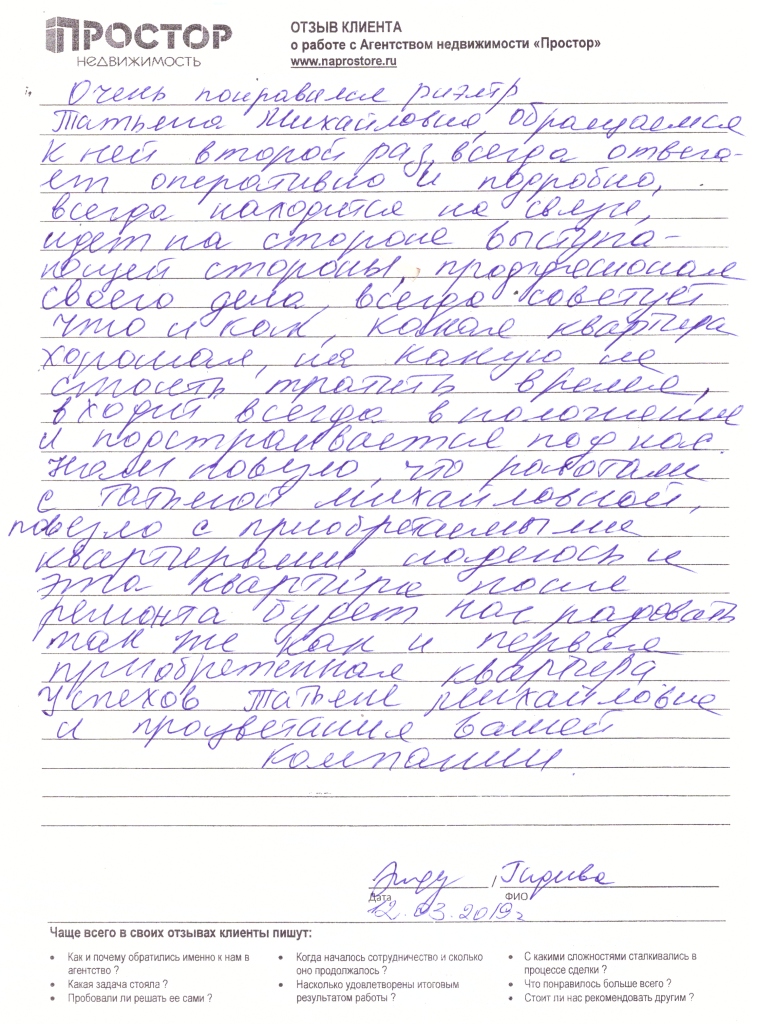 ПРОСТОР
НЕДВИЖИМОСТЬ
ОТЗЫВ КЛИЕНТА
о работе с Агентством недвижимости «Простор»
www.naprostore.ru
Очень понравился риэлтр
Татьяна Михайловна, обращаемся
к ней второй раз, всегда отвега-
ет оперативно и подробно,
всегда находится на связи,
идет на стороне выступа-
ющей стороны, профессионал
своего дела, всегда советует
что и как, какая квартира
хорошая, на какую не
стоить тратить время,
входит всегда в положение
и подстраивается под нас.
Нам повезло, что работали
с Татьяной Михайловной,
повезло с приобретаемыми
квартирами, надеюсь и
эта квартира после
ремонта будет нас радовать
так же как и первая
приобретенная квартира
Успехов Татьяне Михайловне
и процветания вашей
компании.
/
Дата
ФИО
12.03.2019г
Чаще всего в своих отзывах клиенты пишут:
• Как и почему обратились именно к нам в агентство ?
• Какая задача стояла ?
• Пробовали ли решать ее сами ?
• Когда началось сотрудничество и сколько оно продолжалось ?
• Насколько удовлетворены итоговым результатом работы ?
• С какими сложностями сталкивались в процессе сделки ?
• Что понравилось больше всего ?
• Стоит ли нас рекомендовать другим ?